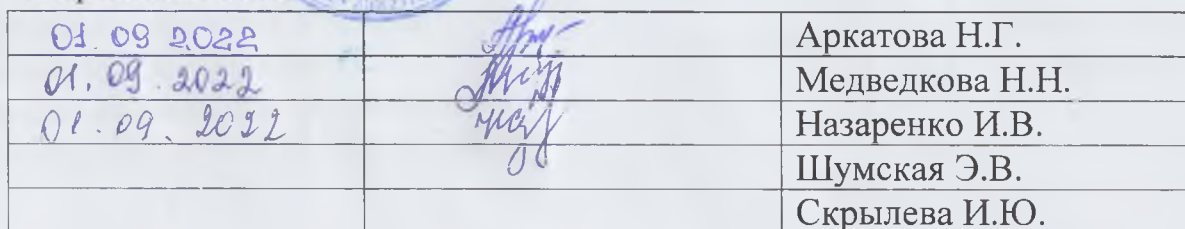 01.09 2022 Аркатова Н.Г.
01.09.2022 Медведкова Н.Н.
01.09.2022 Назаренко И.В.
Шумская Э.В.
Скрылева И.Ю.